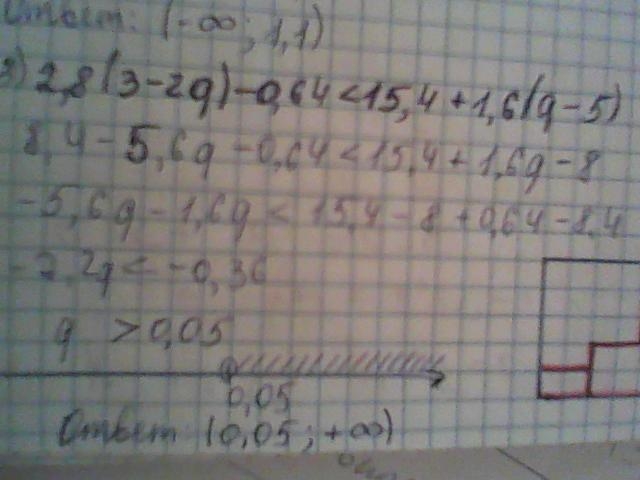 Ответ: (-∞; 1,1)
3) 2,8(3-2q)-0,64<15,4+1,6(q-5)
8,4-5,6q-0,64<15,4+1,6q-8
-5,6q-1,6q<15,4-8+0,64-8,4
-7,2q<-0,36
q >0,05
0,05
Ответ: (0,05; +∞)